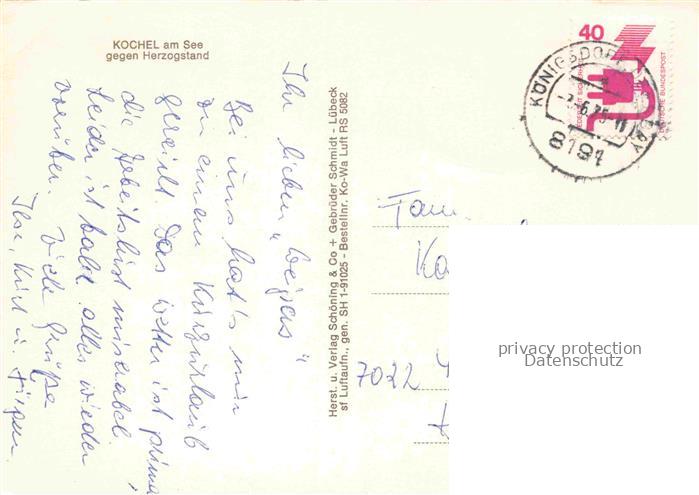 KOCHEL am See
gegen Herzogstand
Ihr lieben „Weipas"
Bei uns hat's nur
zu einem Kurzurlaub
gereicht. Das Wetter ist prima
die Arbeitslust miserabel.
Leider ist bald alles wieder
vorüber. Viele Grüße
Ilse, Kurt u. Jürgen
Herst. u. Verlag Schöning & Co + Gebrüder Schmidt - Lübeck
sf Luftaufn., gen. SH 1-91025 - Bestellnr. Ko-Wa Luft RS 5082
40
DEUTSCHE BUNDESPOST
KÖNIGSDORF
8191
Fam
Ka
7022
privacy protection
Datenschutz